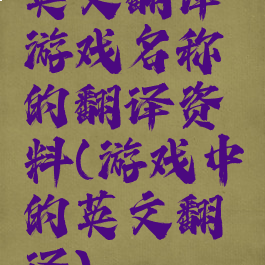 英文翻译
游戏名称
的翻译资
料(游戏中
的英文翻
译)